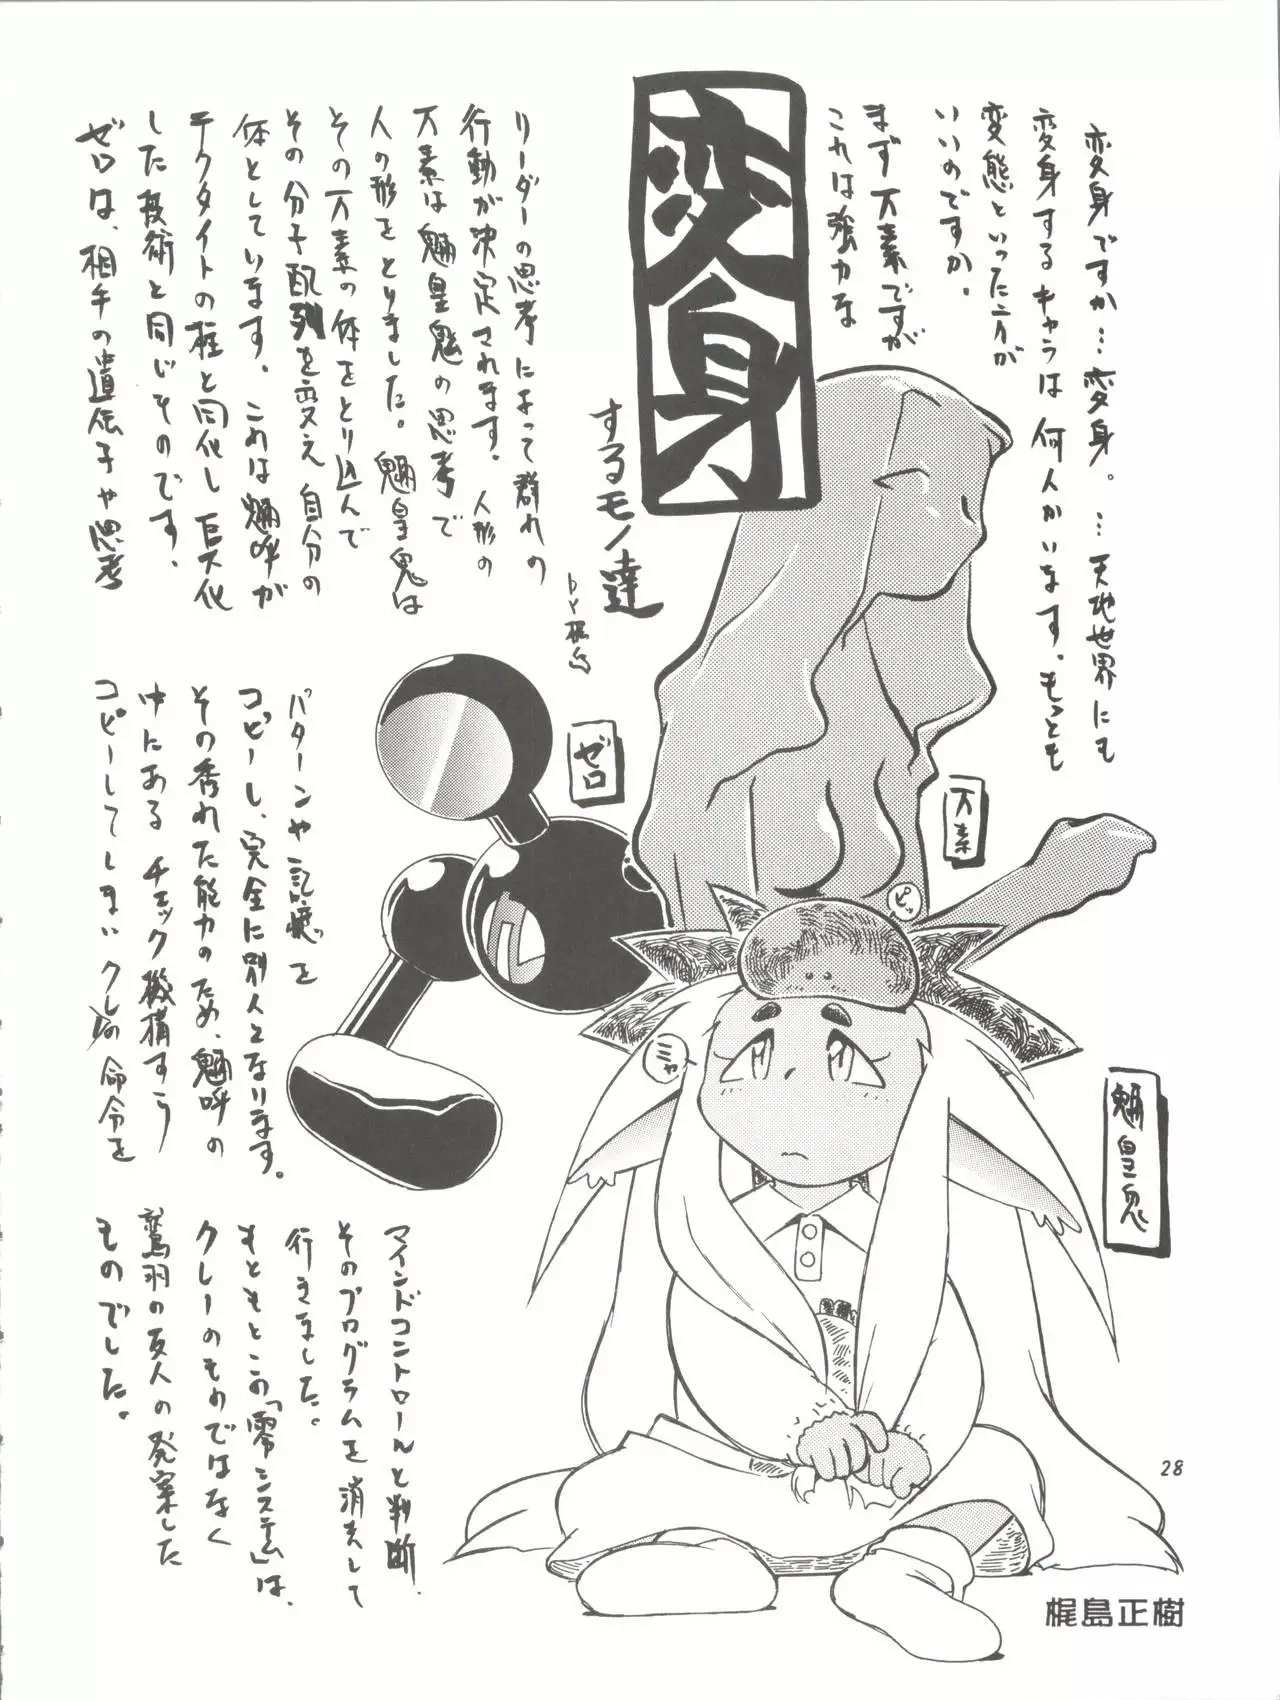 変身
するモノ達
by梶島
変身ですか…変身。…天地世界にも
変身するキャラは何人かいます。もっとも
変態といった方が
いいのですか。
まず万素ですが
これは強力な
リーダーの思考によって群れの
行動が決定されます。人形の
万素は魎皇鬼の思考で
人の形をとりました。魎皇鬼は
その万素の体をとり込んで
その分子配列を変え自分の
体としています。これは魎呼が
テクタイトの柱と同化し巨大化
した技術と同じそのです。
ゼロは、相手の遺伝子や思考
パターンや記憶を
コピーし、完全に別人となります。
その秀れた能力のため、魎呼の
中にあるチェック機構すら
コピーしてしまいクレーの命令を
マインドコントロールと判断
そのプログラムを消去して
行きました。
もともとこの「零システム」は、
クレーのものではなく
鷲羽の友人の発案した
ものでした。
ゼロ
万素
ピッ
ミャ
魎皇鬼
28
梶島正樹